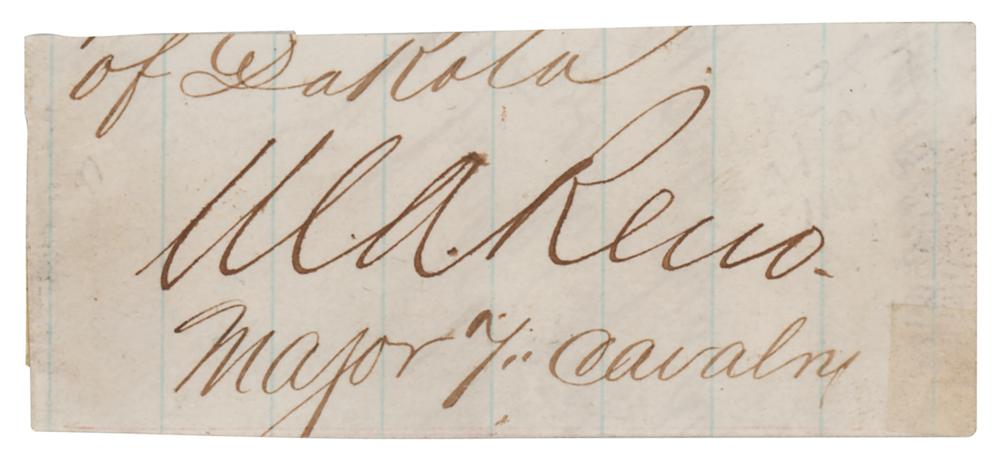 of Dakota.
M.A. Reno.
Major 7" Cavalry